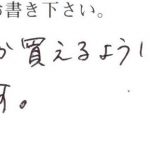 お書き下さい。
か買えるように
す。